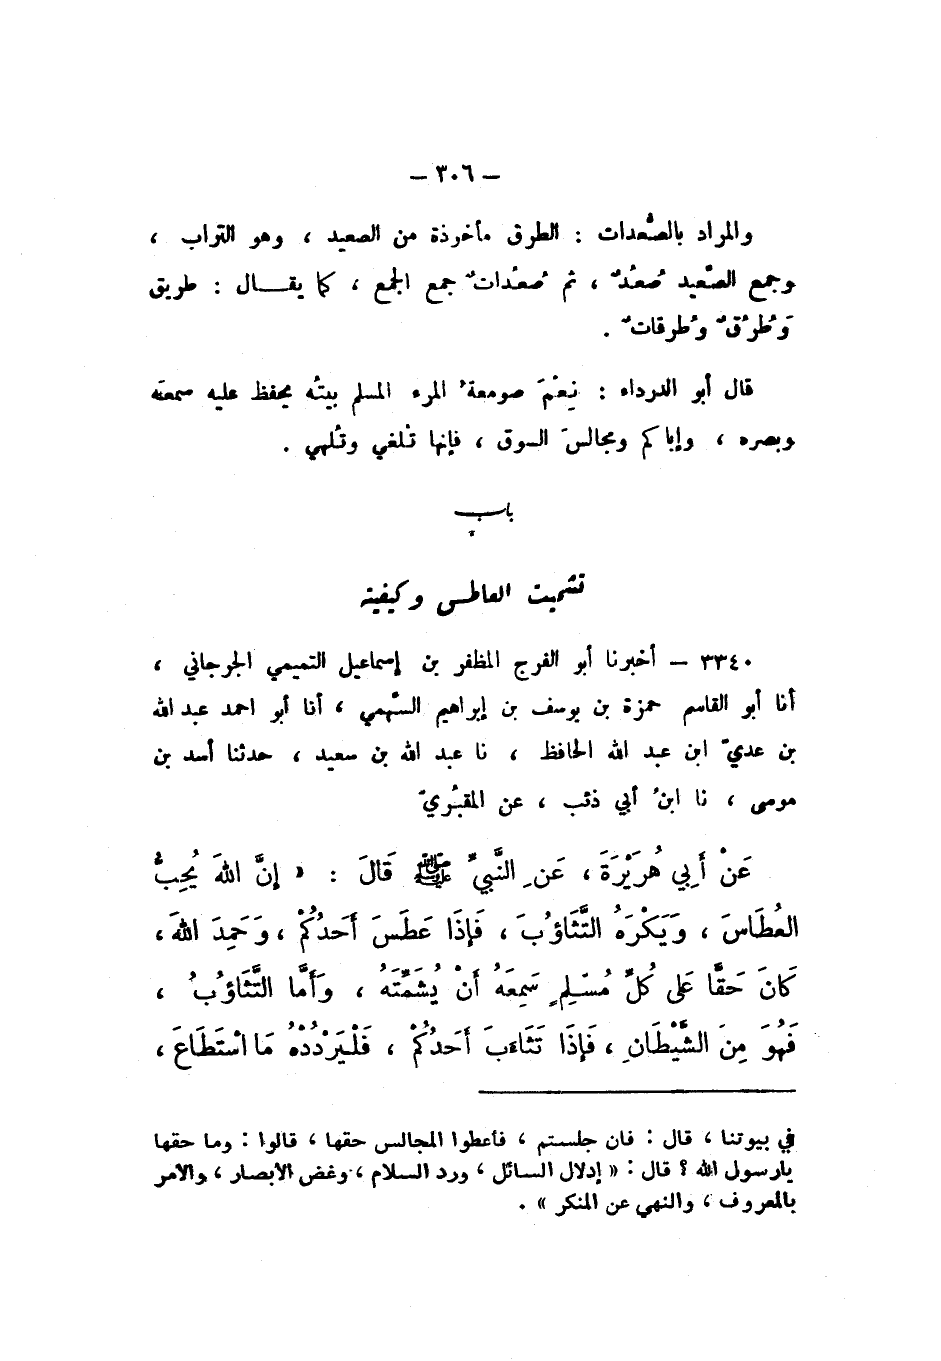 – ٣٠٦ –
والمراد بالصُّعدات : الطرق مأخوذة من الصعيد ، وهو التراب ،
وجمع الصَّعيد صُعُدٌ ، ثم صُعُداتٌ جمع الجمع ، كما يقـــال : طريق
وَطُرُقٌ وطُرقاتٌ .
قال أبو الدرداء : نِعْمَ صومعةُ المرء المسلم بيتُه يحفظ عليه سمعَه
وبصره ، وإياكم ومجالسَ السوق ، فإنها تُلغي وتُلهي .
باب
تشميت العاطس وكيفيته
٣٣٤٠ – أخبرنا أبو الفرج المظفر بن إسماعيل التميمي الجرجاني ،
أنا أبو القاسم حمزة بن يوسف بن إبراهيم السَّهمي ، أنا أبو احمد عبد الله
بن عديّ ابن عبد الله الحافظ ، نا عبد الله بن سعيد ، حدثنا أسد بن
موسى ، نا ابنُ أبي ذئب ، عن المقبُريّ
عَنْ أَبِي هُرَيْرَةَ ، عَنِ النَّبِيِّ ﷺ قَالَ : « إِنَّ اللهَ يُحِبُّ
العُطَاسَ ، وَيَكْرَهُ التَّثَاؤُبَ ، فَإِذَا عَطَسَ أَحَدُكُمْ ، وَحَمِدَ اللهَ ،
كَانَ حَقًّا عَلَى كُلِّ مُسْلِمٍ سَمِعَهُ أَنْ يُشَمِّتَهُ ، وَأَمَّا التَّثَاؤُبُ ،
فَهُوَ مِنَ الشَّيْطَانِ ، فَإِذَا تَثَاءَبَ أَحَدُكُمْ ، فَلْيَرْدُدْهُ مَا اسْتَطَاعَ ،
في بيوتنا ، قال : فان جلستم ، فأعطوا المجالس حقها ، قالوا : وما حقها
يارسول الله ؟ قال : « إدلال السائل ، ورد السلام ، وغض الابصار ، والامر
بالمعروف ، والنهي عن المنكر » .